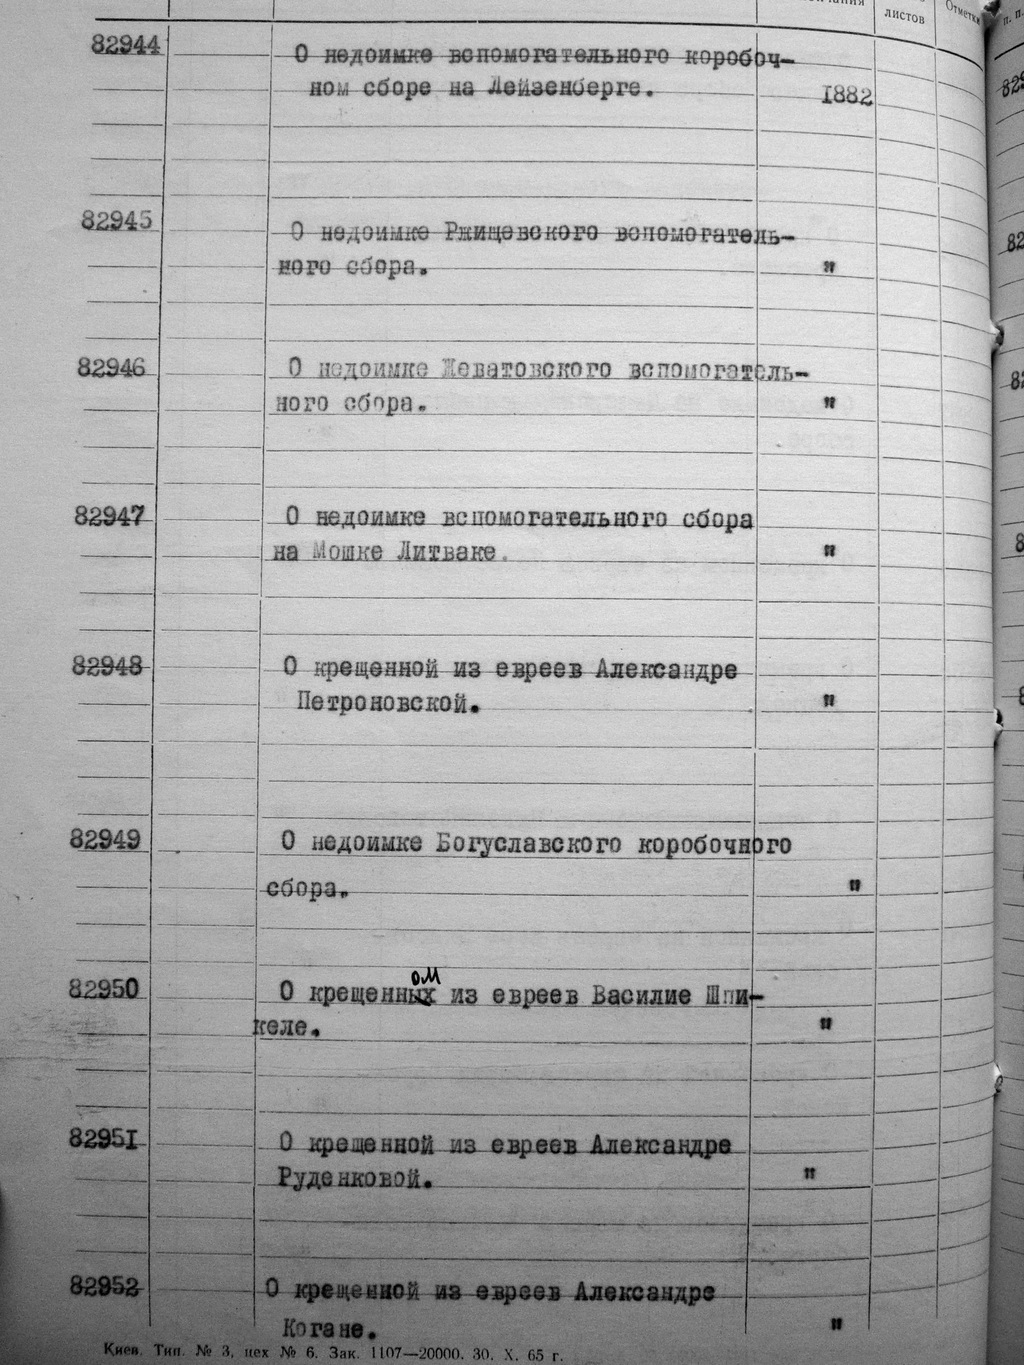 листов
Отметки
п. п.
82944 О недоимке вспомогательного коробоч-
ном сборе на Лейзенберге. 1882
82945 О недоимке Ржищевского вспомогатель-
ного сбора. "
82946 О недоимке Леватовского вспомогатель-
ного сбора. "
82947 О недоимке вспомогательного сбора
на Мошке Литваке. "
82948 О крещенной из евреев Александре
Петроновской. "
82949 О недоимке Богуславского коробочного
сбора. "
ом
82950 О крещенных из евреев Василие Шпи-
келе. "
82951 О крещенной из евреев Александре
Руденковой. "
82952 О крещенной из евреев Александре
Когане. "
Киев. Тип. № 3, цех № 6. Зак. 1107—20000. 30. X. 65 г.